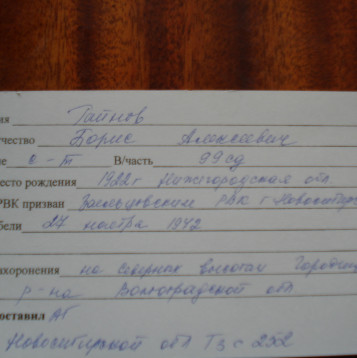 ия Тайнов
чество Борис Алексеевич
ие с-т В/часть 99сд
есто рождения 1922г Нижегородская обл.
РВК призван Заельцовским РВК г Новосибирс
бели 27 ноября 1942
хоронения на северных высотах Городищ
р-на Волгоградской обл
оставил АГ
Новосибирской обл Т3 с 252